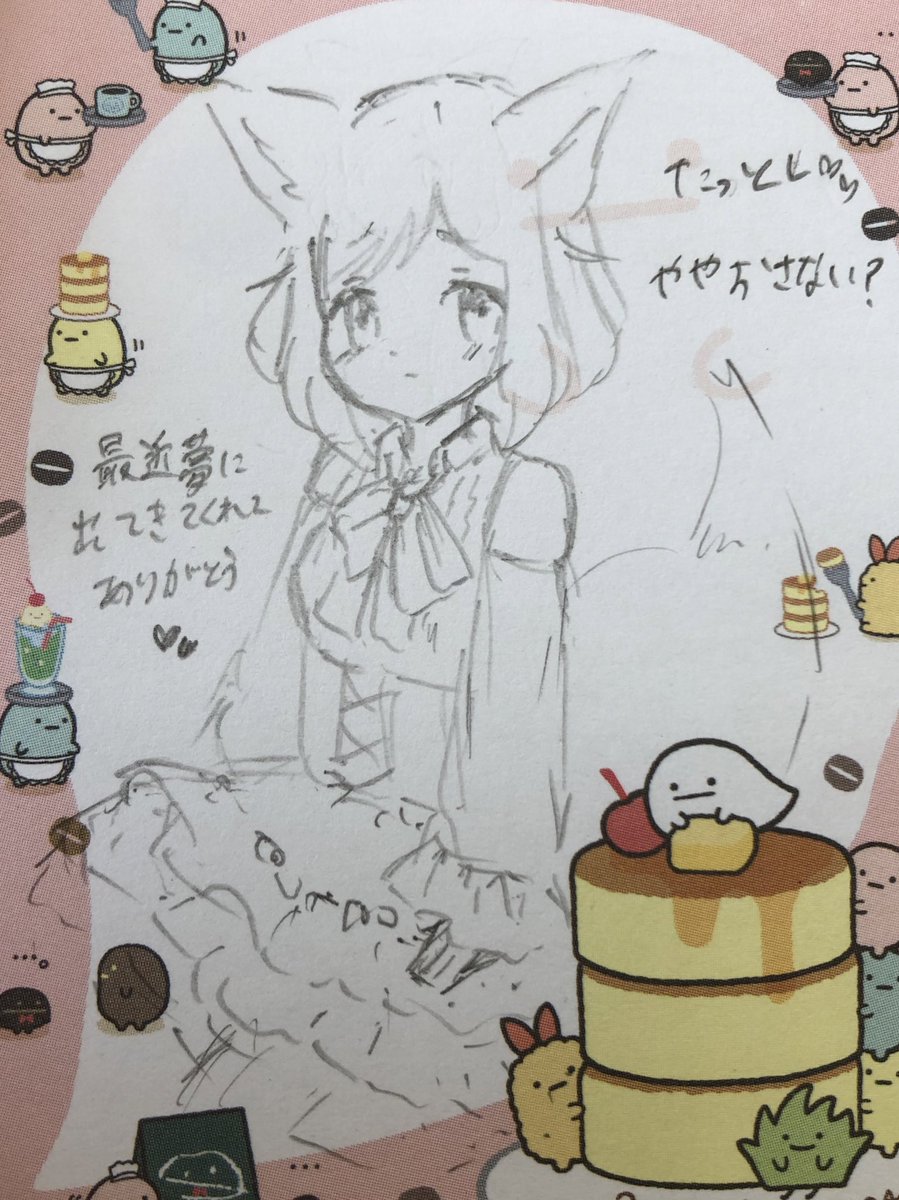 たっとしッッ
ややおさない?
最近夢に
出てきてくれて
ありがとう